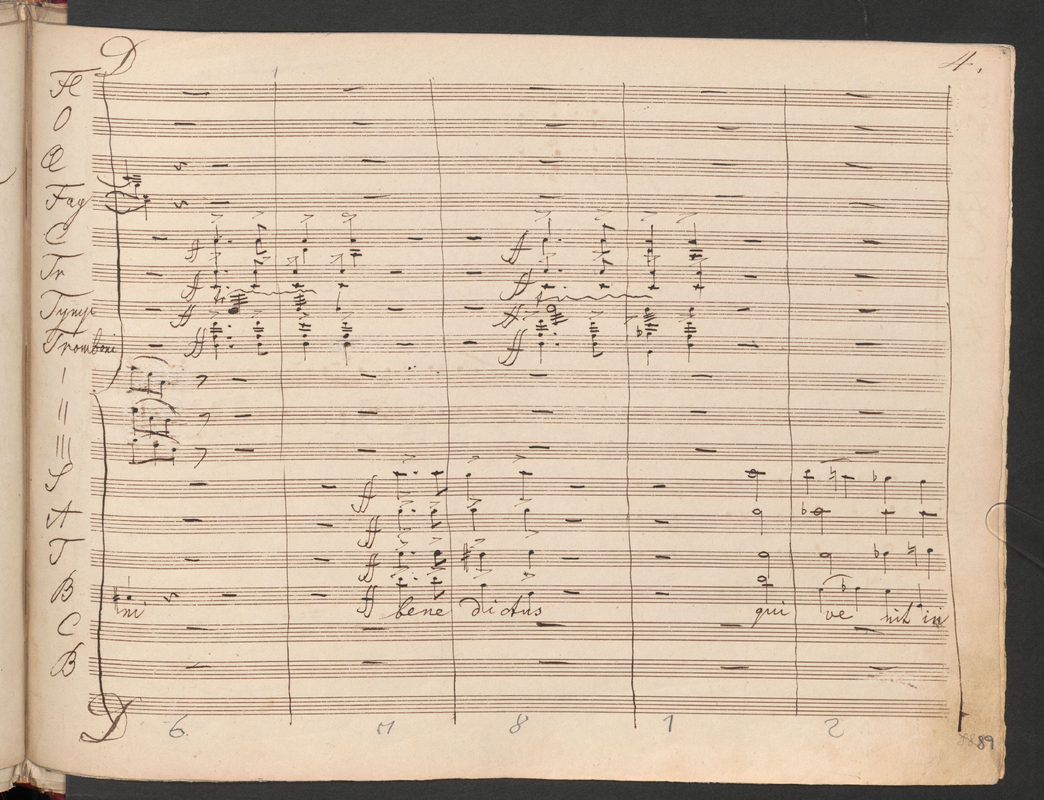 4.
Fl
O
Cl
Fag
C
Tr
ff ff
Tymp
tr
ff ff
Tromboni
ff ff
I
II
III
S
ff
A
ff
T
ff
B
ff
ini bene dictus qui ve nit in
C
B
6. 7 8 1 2
89